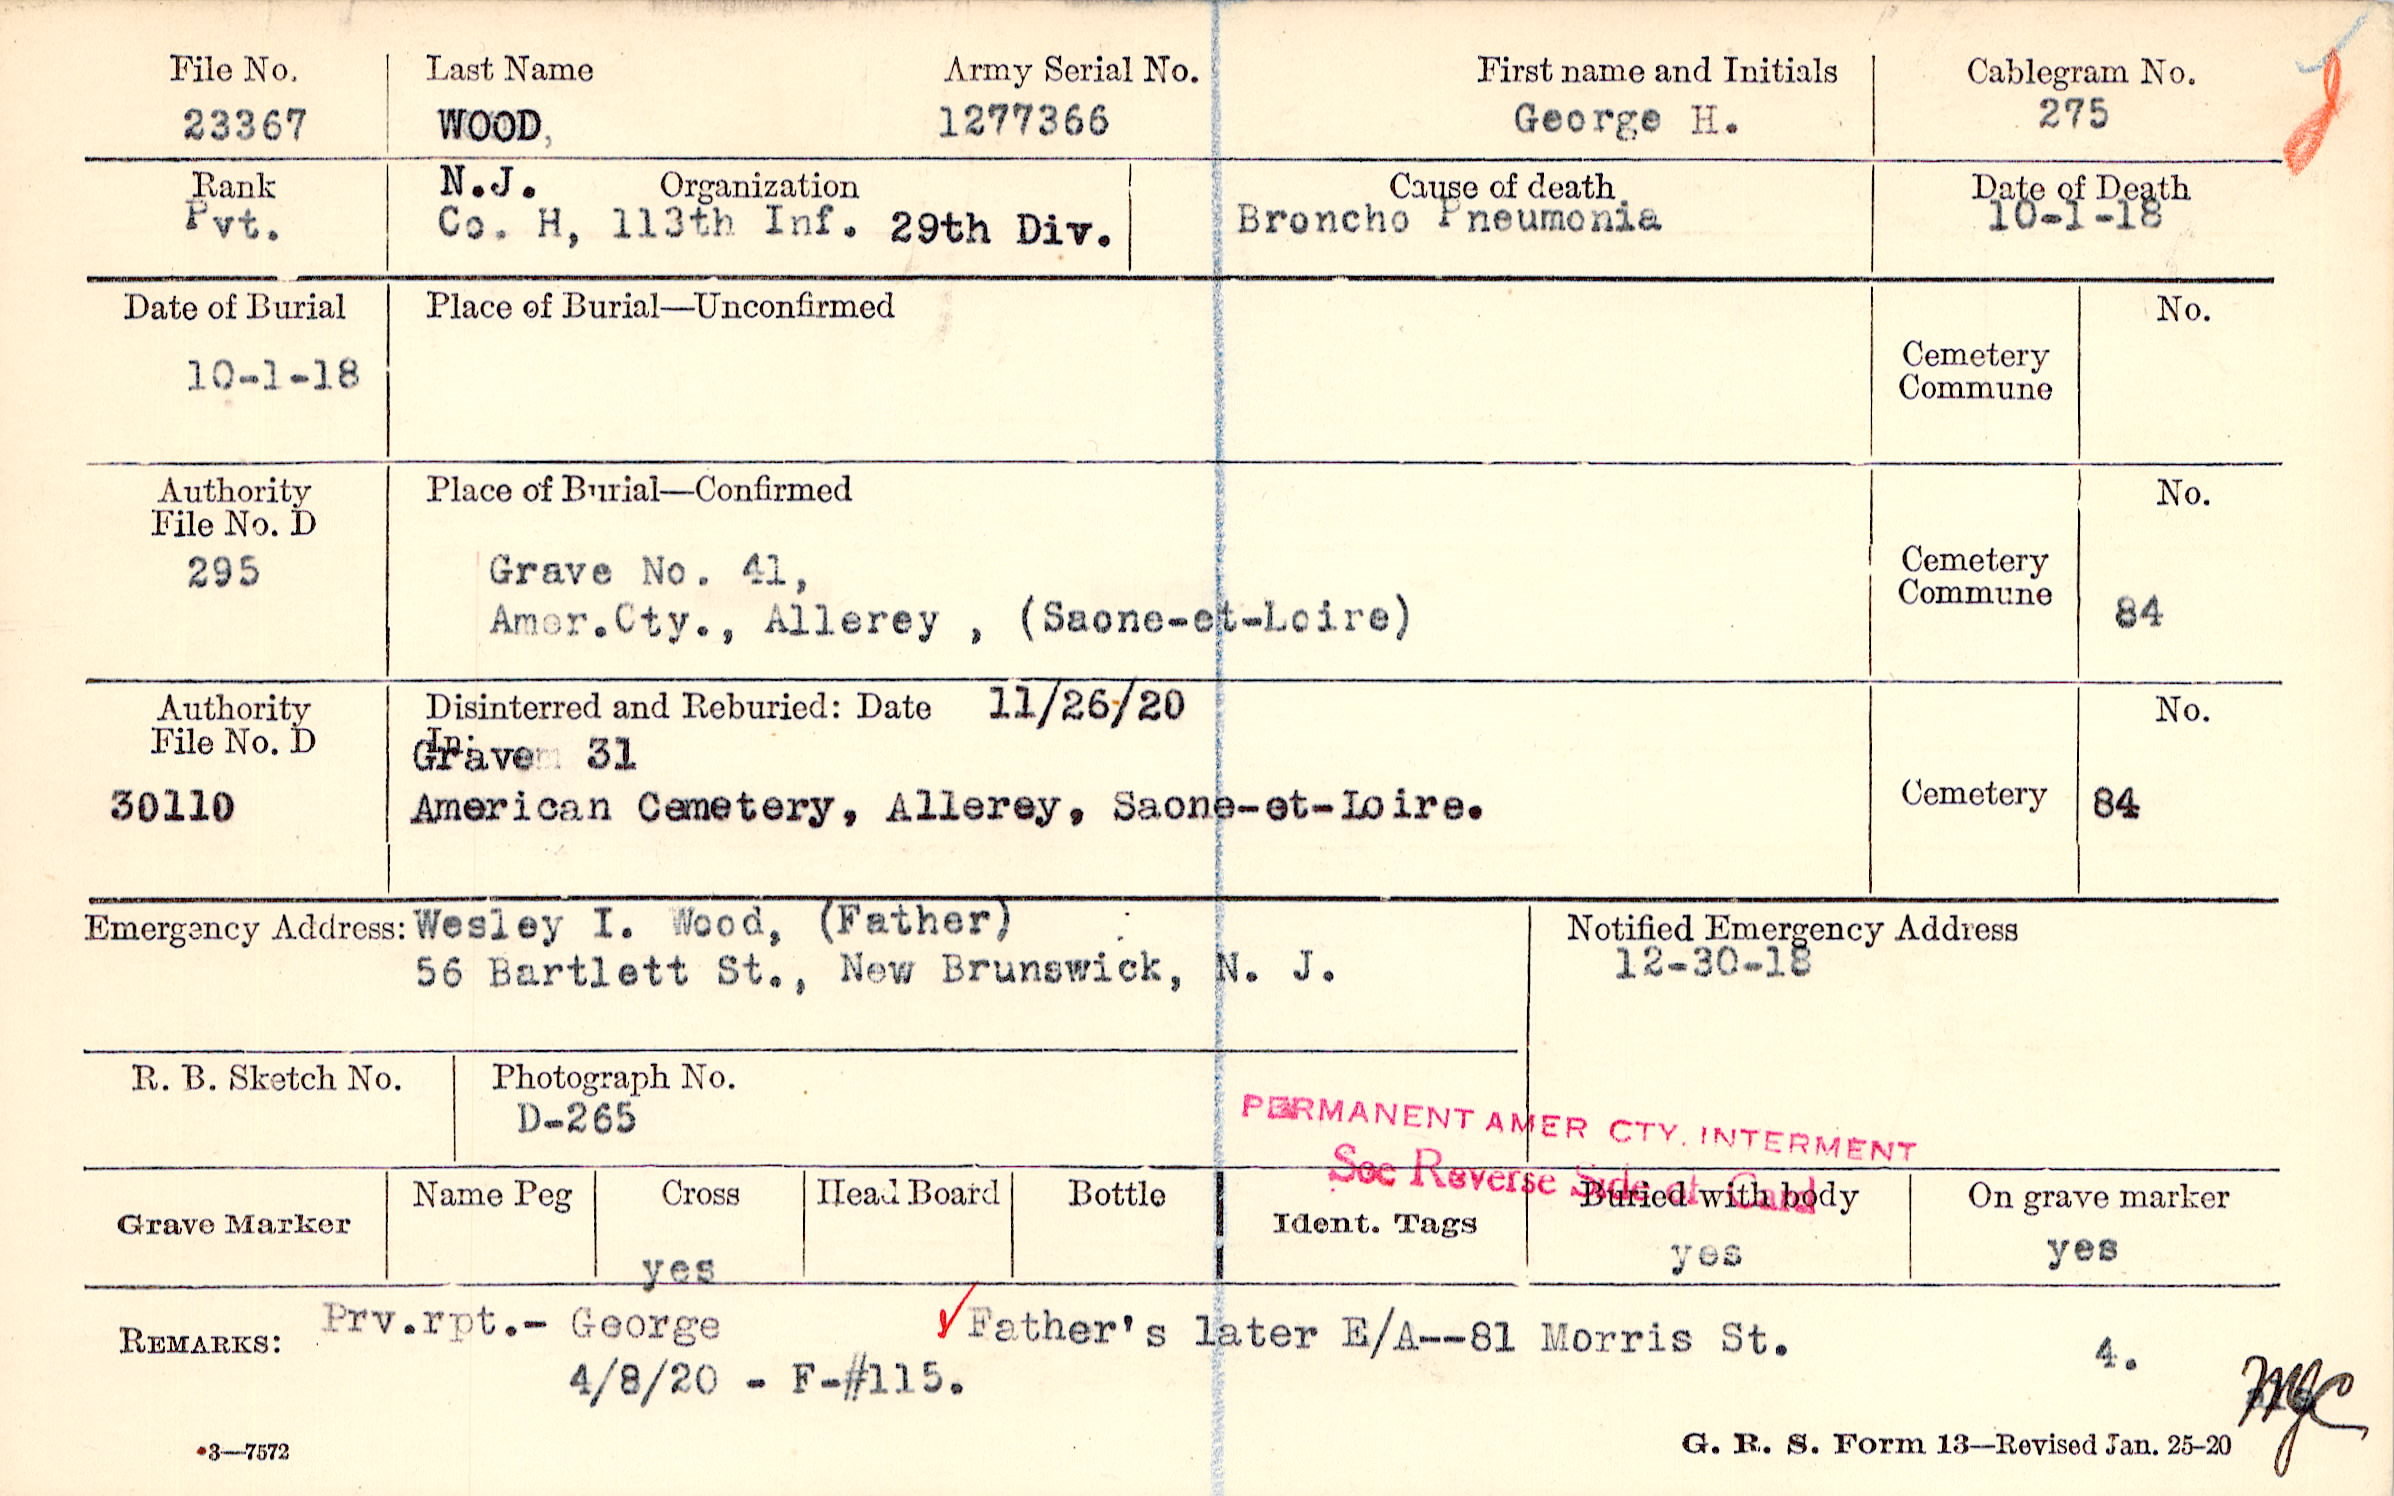 File No. Last Name Army Serial No. First name and Initials Cablegram No.
23367 WOOD, 1277366 George H. 275
Rank N.J. Organization Cause of death Date of Death
Pvt. Co. H, 113th Inf. 29th Div. Broncho Pneumonia 10-1-18
Date of Burial Place of Burial—Unconfirmed No.
Cemetery
Commune
10-1-18
Authority Place of Burial—Confirmed No.
File No. D
295 Grave No. 41, Cemetery
Commune
Amer.Cty., Allerey , (Saone-et-Loire) 84
Authority Disinterred and Reburied: Date 11/26/20 No.
File No. D In:
Grave 31
30110 American Cemetery, Allerey, Saone-et-Loire. Cemetery 84
Emergency Address: Wesley I. Wood, (Father) Notified Emergency Address
56 Bartlett St., New Brunswick, N. J. 12-30-18
R. B. Sketch No. Photograph No.
D-265
PERMANENT AMER CTY. INTERMENT
See Reverse Side of Card
Grave Marker Name Peg Cross Head Board Bottle Ident. Tags Buried with body On grave marker
yes yes yes
REMARKS: Prv.rpt.- George Father's later E/A--81 Morris St. 4.
4/8/20 - F-#115.
MJC
3—7572 G. R. S. Form 13—Revised Jan. 25-20